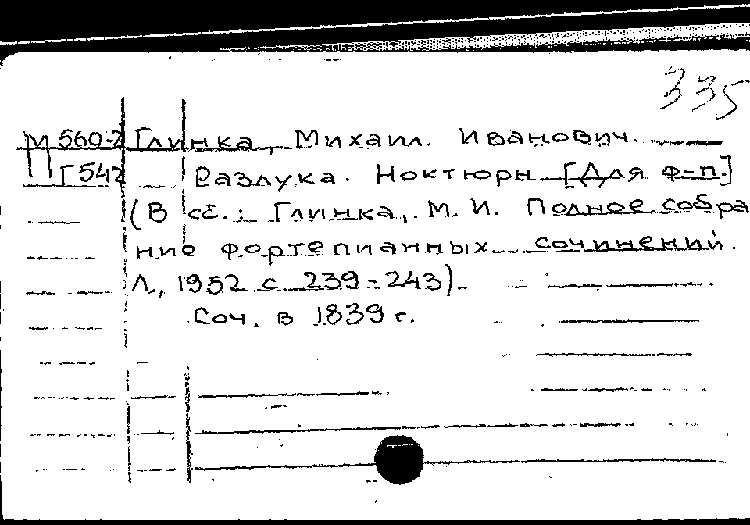 335
М 560-2 Глинка, Михаил Иванович.
Г 542 Разлука. Ноктюрн [Для ф-п.]
(В сб.: Глинка, М. И. Полное собра
ние фортепианных сочинений.
Л., 1952 с 239-243).
Соч. в 1839 г.